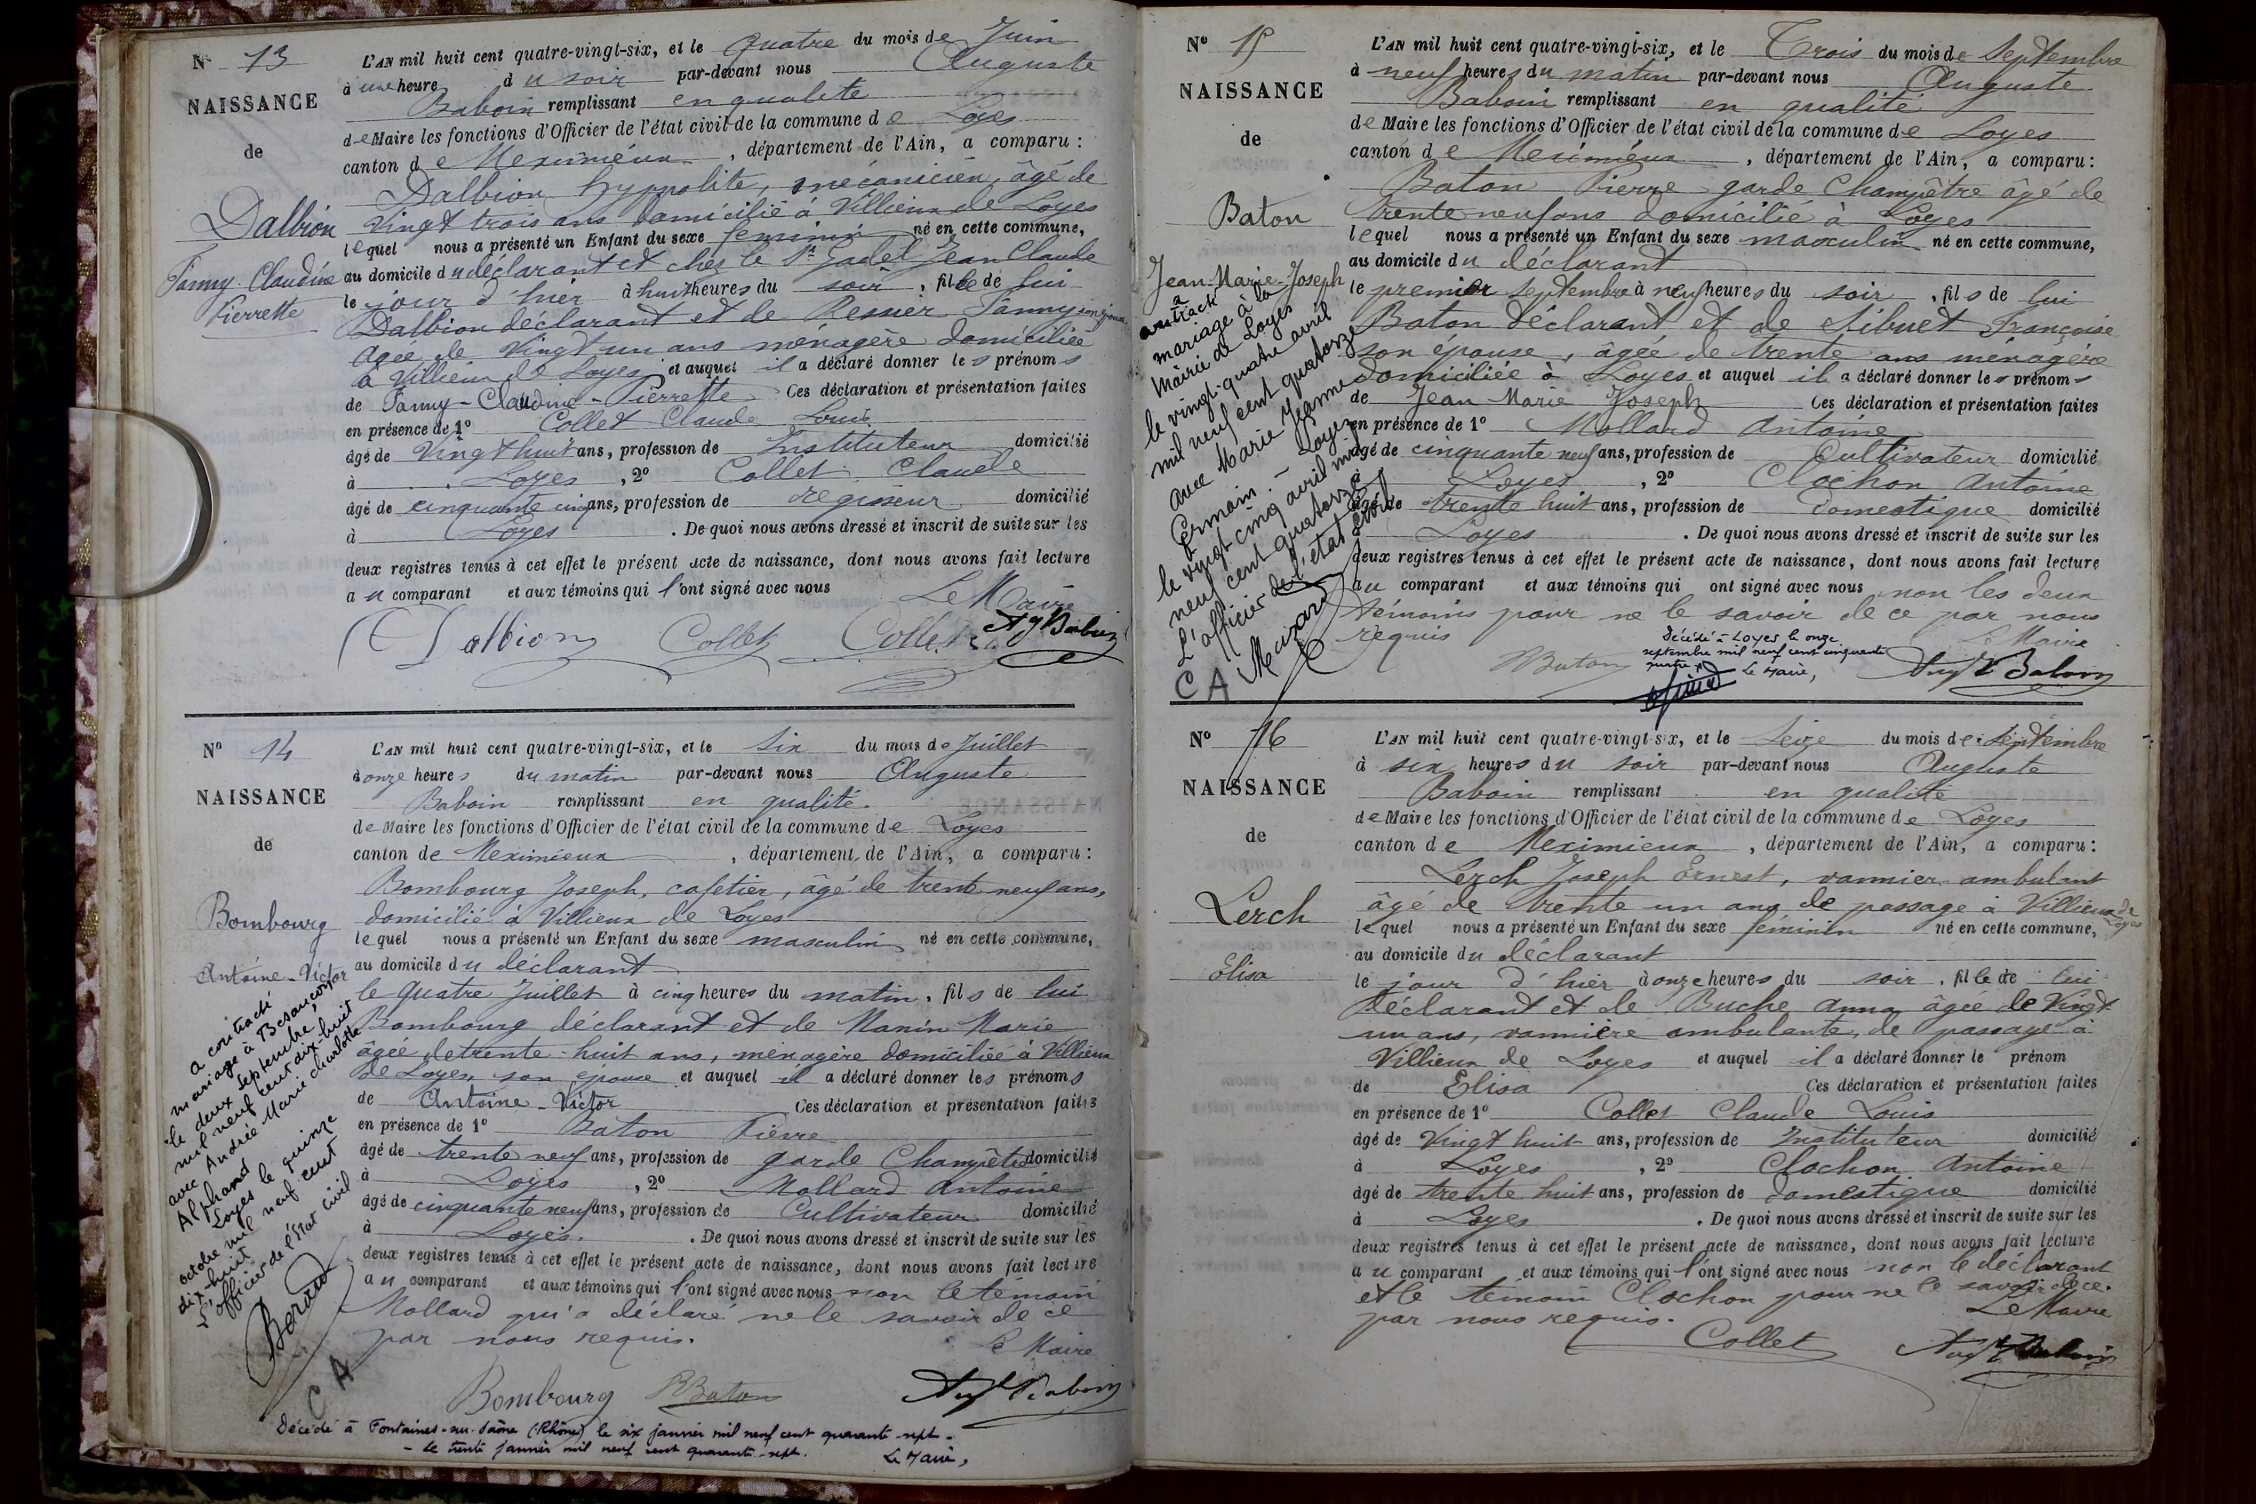 N° 13
NAISSANCE
de
Dalbion
Fanny Claudine
Pierrette
L'AN mil huit cent quatre-vingt-six, et le quatre du mois de Juin
à une heure du soir par-devant nous Auguste
Baboin remplissant en qualité
de Maire les fonctions d'Officier de l'état civil de la commune de Loyes
canton de Meximieux, département de l'Ain, a comparu :
Dalbion hyppolite, mécanicien, âgé de
Vingt trois ans domicilié à Villieux de Loyes
lequel nous a présenté un Enfant du sexe féminin né en cette commune,
au domicile du déclarant et chez le Sr Jean Claude
le jour d'hier à huit heures du soir, fille de lui
Dalbion déclarant et de Ressier Fanny son épouse
âgée de vingt un ans ménagère domiciliée
à Villieux de Loyes et auquel il a déclaré donner les prénoms
de Fanny-Claudine-Pierrette Ces déclaration et présentation faites
en présence de 1° Collet Claude Louis
âgé de Vingt huit ans, profession de Instituteur domicilié
à Loyes, 2° Collet Claude
âgé de cinquante cinq ans, profession de régisseur domicilié
à Loyes. De quoi nous avons dressé et inscrit de suite sur les
deux registres tenus à cet effet le présent acte de naissance, dont nous avons fait lecture
au comparant et aux témoins qui l'ont signé avec nous
Le Maire
Dalbion Collet Collet Ag Baboin
N° 14
NAISSANCE
de
Bombourg
Antoine-Victor
a contracté
mariage à Besançon,
le deux septembre,
mil neuf cent dix-huit
avec Andrée Marie Charlotte
Alphand
Loyes le quinze
octobre mil neuf cent
dix huit
L'officier de l'Etat civil
C A
L'AN mil huit cent quatre-vingt-six, et le Six du mois de Juillet
à onze heures du matin par-devant nous Auguste
Baboin remplissant en qualité.
de Maire les fonctions d'Officier de l'état civil de la commune de Loyes
canton de Meximieux, département de l'Ain, a comparu :
Bombourg Joseph, cafetier, âgé de trente neuf ans,
domicilié à Villieux de Loyes
lequel nous a présenté un Enfant du sexe masculin né en cette commune,
au domicile du déclarant
le quatre Juillet à cinq heures du matin, fils de lui
Bombourg déclarant et de Manin Marie
âgée de trente-huit ans, ménagère domiciliée à Villieux
de Loyes, son épouse et auquel il a déclaré donner les prénoms
de Antoine-Victor Ces déclaration et présentation faites
en présence de 1° Baton Pierre
âgé de trente neuf ans, profession de garde Champêtre domicilié
à Loyes, 2° Mollard Antoine
âgé de cinquante neuf ans, profession de Cultivateur domicilié
à Loyes. De quoi nous avons dressé et inscrit de suite sur les
deux registres tenus à cet effet le présent acte de naissance, dont nous avons fait lecture
au comparant et aux témoins qui l'ont signé avec nous non le témoin
Mollard qui a déclaré ne le savoir de ce
par nous requis.
Le Maire
Bombourg PBaton Augte Baboin
Décédé à Fontaines-su-Saône (Rhône) le six janvier mil neuf cent quarante-sept.
- Le trente janvier mil neuf cent quarante-sept. Le Maire,
N° 15
NAISSANCE
de
Baton
Jean-Marie-Joseph
a
contracté
mariage à la
Mairie de Loyes
le vingt-quatre avril
mil neuf cent quatorze
avec Marie Jeanne
Germain - Loyes
le vingt cinq avril mil
neuf cent quatorze
L'officier de l'état civil
C A
L'AN mil huit cent quatre-vingt-six, et le Trois du mois de Septembre
à neuf heures du matin par-devant nous Auguste
Baboin remplissant en qualité
de Maire les fonctions d'Officier de l'état civil de la commune de Loyes
canton de Meximieux, département de l'Ain, a comparu :
Baton Pierre garde Champêtre âgé de
trente neuf ans domicilié à Loyes
lequel nous a présenté un Enfant du sexe masculin né en cette commune,
au domicile du déclarant
le premier Septembre à neuf heures du soir, fils de lui
Baton déclarant et de Sibuet Françoise
son épouse, âgée de trente ans ménagère
domiciliée à Loyes et auquel il a déclaré donner les prénoms
de Jean Marie Joseph Ces déclaration et présentation faites
en présence de 1° Mollard Antoine
âgé de cinquante neuf ans, profession de Cultivateur domicilié
Loyes, 2° Clochon Antoine
âgé de trente huit ans, profession de domestique domicilié
Loyes. De quoi nous avons dressé et inscrit de suite sur les
deux registres tenus à cet effet le présent acte de naissance, dont nous avons fait lecture
au comparant et aux témoins qui ont signé avec nous non les deux
témoins pour ne le savoir de ce par nous
requis
Le Maire
Décédé à Loyes le onze
septembre mil neuf cent cinquante
quatre
Le Maire,
PBaton Augte Baboin
N° 16
NAISSANCE
de
Lerch
Elisa
L'AN mil huit cent quatre-vingt-six, et le Seize du mois de Septembre
à six heures du soir par-devant nous Auguste
Baboin remplissant en qualité
de Maire les fonctions d'Officier de l'état civil de la commune de Loyes
canton de Meximieux, département de l'Ain, a comparu :
Lerch Joseph Ernest, vannier ambulant
âgé de trente un ans de passage à Villieux de Loyes
lequel nous a présenté un Enfant du sexe féminin né en cette commune,
au domicile du déclarant
le jour d'hier à onze heures du soir. fille de lui
déclarant et de Buche Anna âgée de Vingt
un ans, vannière ambulante, de passage à
Villieux de Loyes et auquel il a déclaré donner le prénom
de Elisa Ces déclaration et présentation faites
en présence de 1° Collet Claude Louis
âgé de Vingt huit ans, profession de Instituteur domicilié
à Loyes, 2° Clochon Antoine
âgé de trente huit ans, profession de domestique domicilié
à Loyes. De quoi nous avons dressé et inscrit de suite sur les
deux registres tenus à cet effet le présent acte de naissance, dont nous avons fait lecture
au comparant et aux témoins qui l'ont signé avec nous non le déclarant
et le témoin Clochon pour ne le savoir de ce.
par nous requis.
Le Maire
Collet Augte Baboin